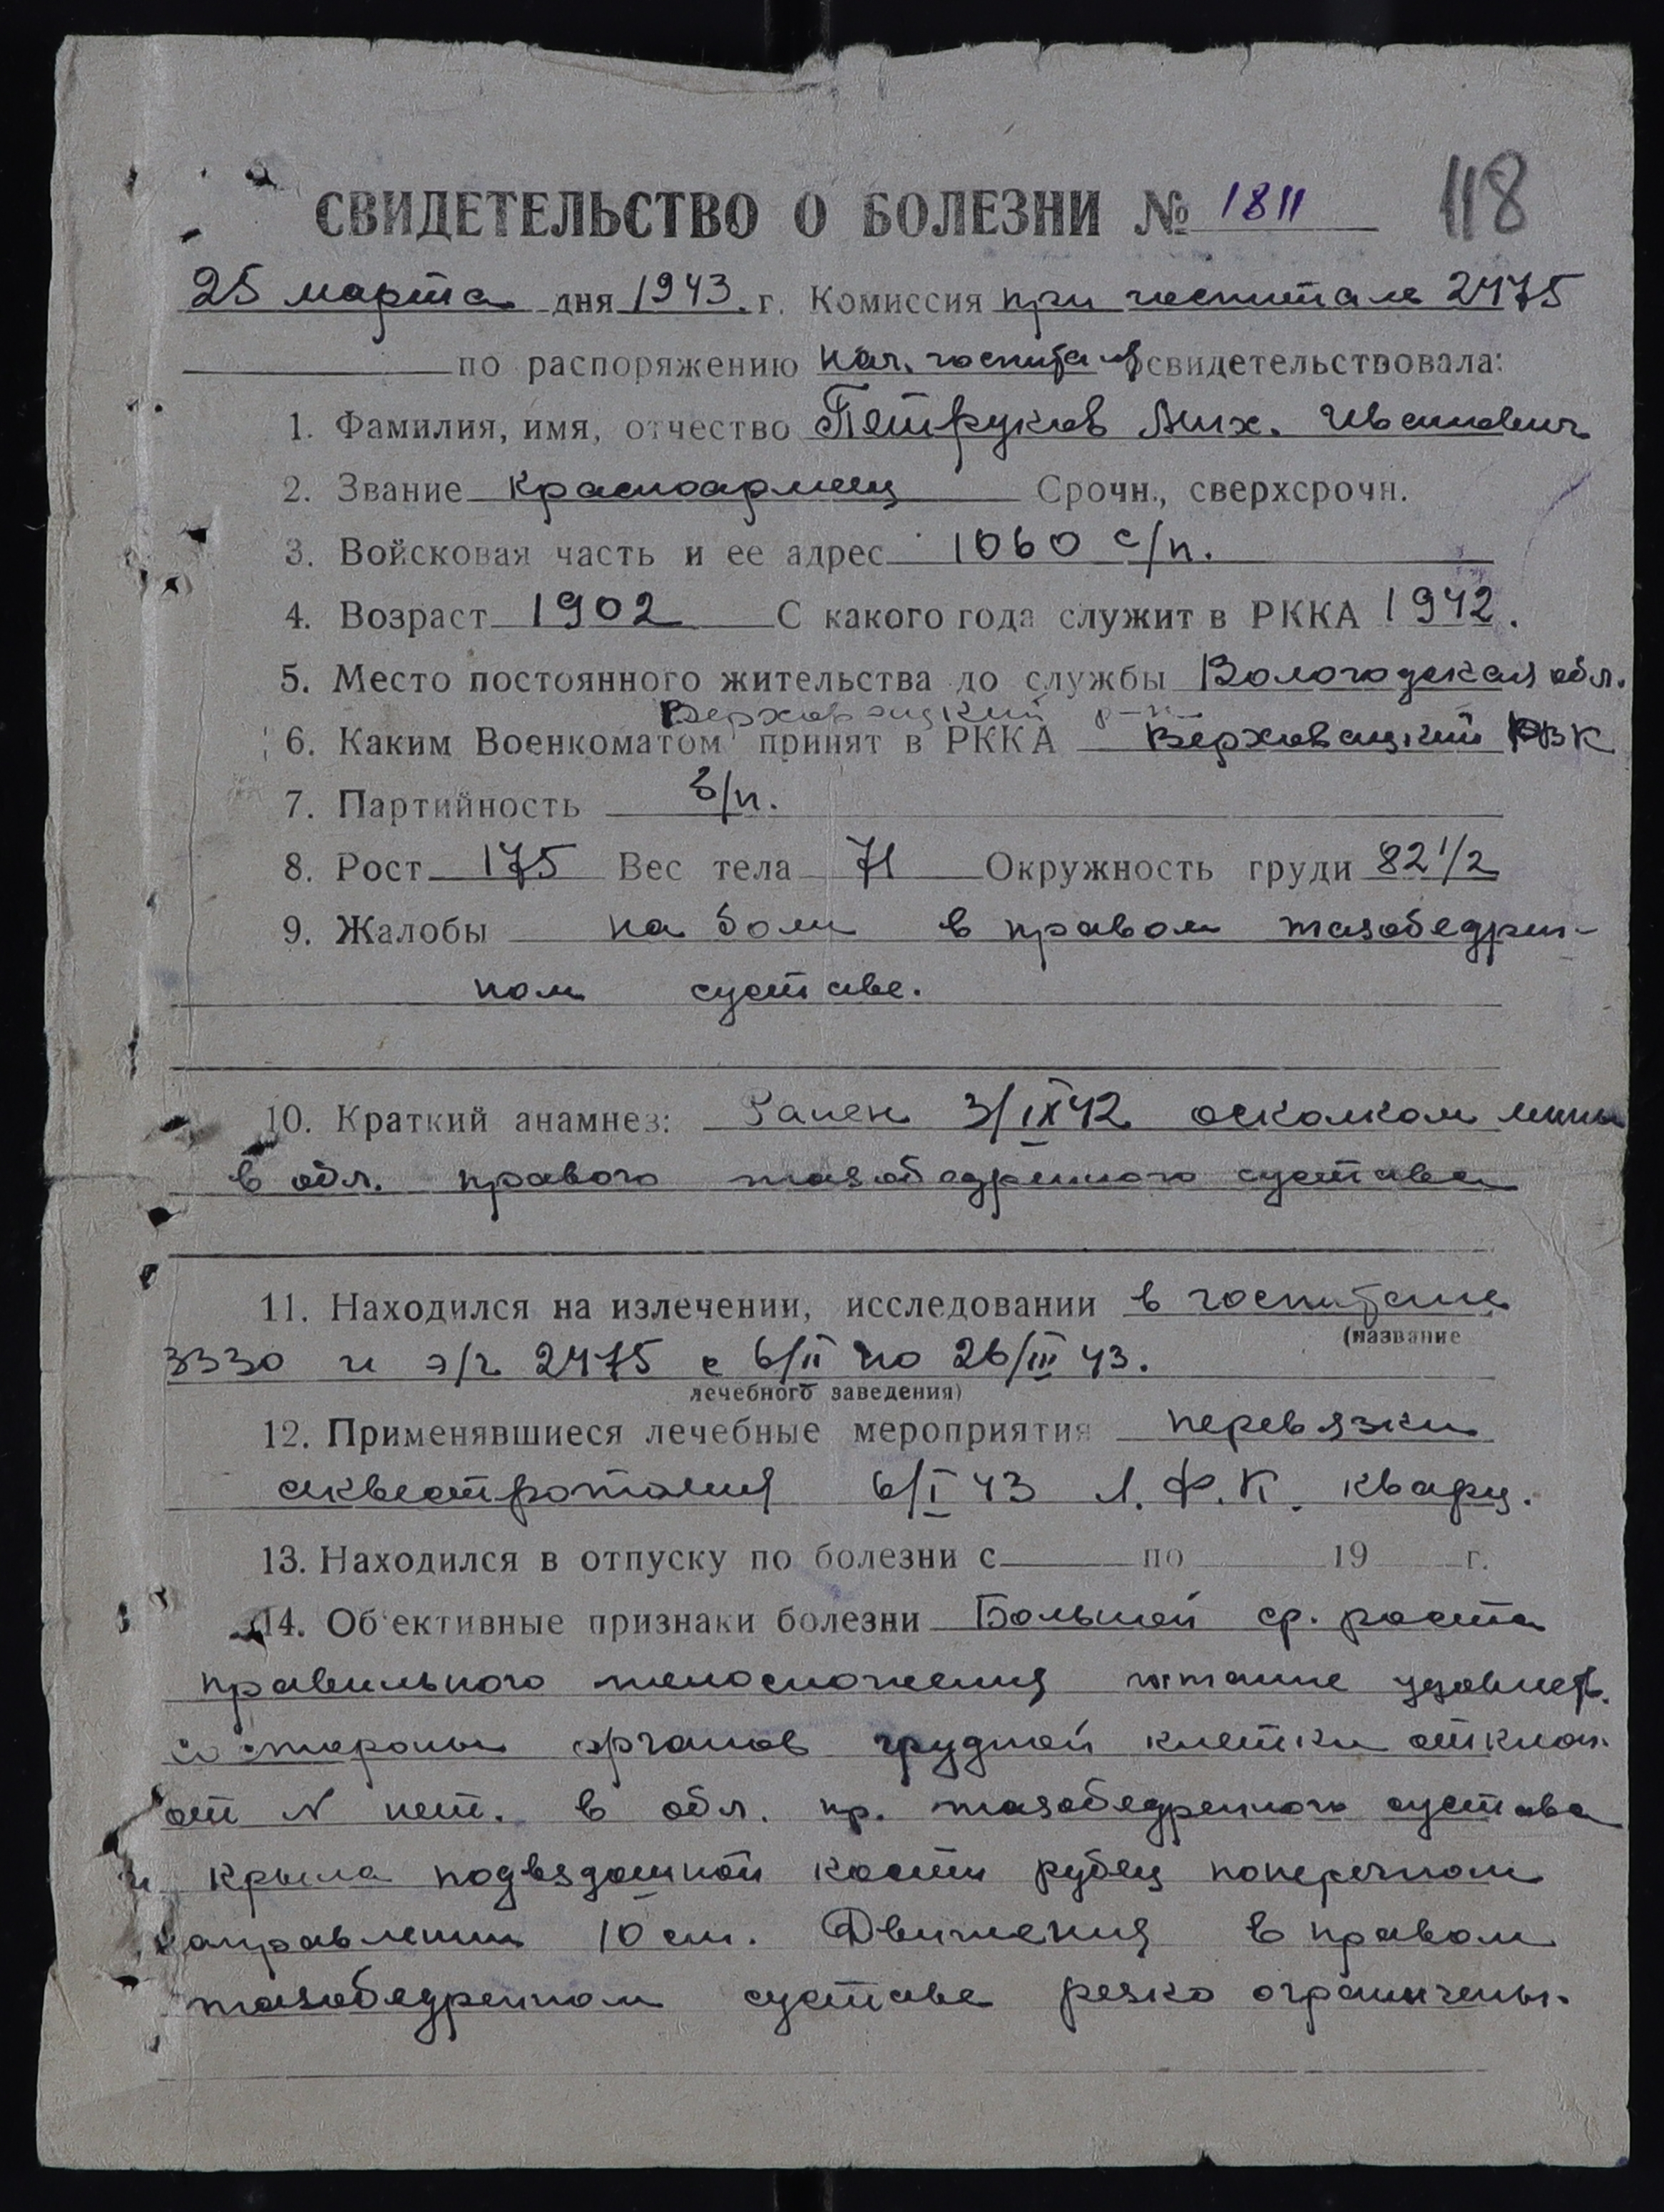 118
СВИДЕТЕЛЬСТВО О БОЛЕЗНИ № 1811
25 марта дня 1943. г. Комиссия при госпитале 2475
по распоряжению нач. госпиталя освидетельствовала:
1. Фамилия, имя, отчество Петруков Мих. Иванович
2. Звание красноармеец Срочн., сверхсрочн.
3. Войсковая часть и ее адрес 1060 с/п.
4. Возраст 1902 С какого года служит в РККА 1942.
5. Место постоянного жительства до службы Вологодская обл.
Верховажский р-н
6. Каким Военкоматом принят в РККА Верховажский РВК
7. Партийность б/п.
8. Рост 175 Вес тела 71 Окружность груди 82 1/2
9. Жалобы на боли в правом тазобедрен-
ном суставе.
10. Краткий анамнез: Ранен 3/IX 42 осколком мины
в обл. правого тазобедренного сустава
11. Находился на излечении, исследовании в госпитале
(название
3330 и э/г 2475 с 6/II по 26/III 43.
лечебного заведения)
12. Применявшиеся лечебные мероприятия перевязки
секвестротомия 6/I 43 Л.Ф.К. кварц.
13. Находился в отпуску по болезни с по 19 г.
14. Об'ективные признаки болезни Больной ср. роста
правильного телосложения питание удовлет.
со стороны органов грудной клетки отклон.
от N нет. в обл. пр. тазобедренного сустава
и крыла подвздошной кости рубец поперечном
направлении 10 см. Движения в правом
тазобедренном суставе резко ограничены.